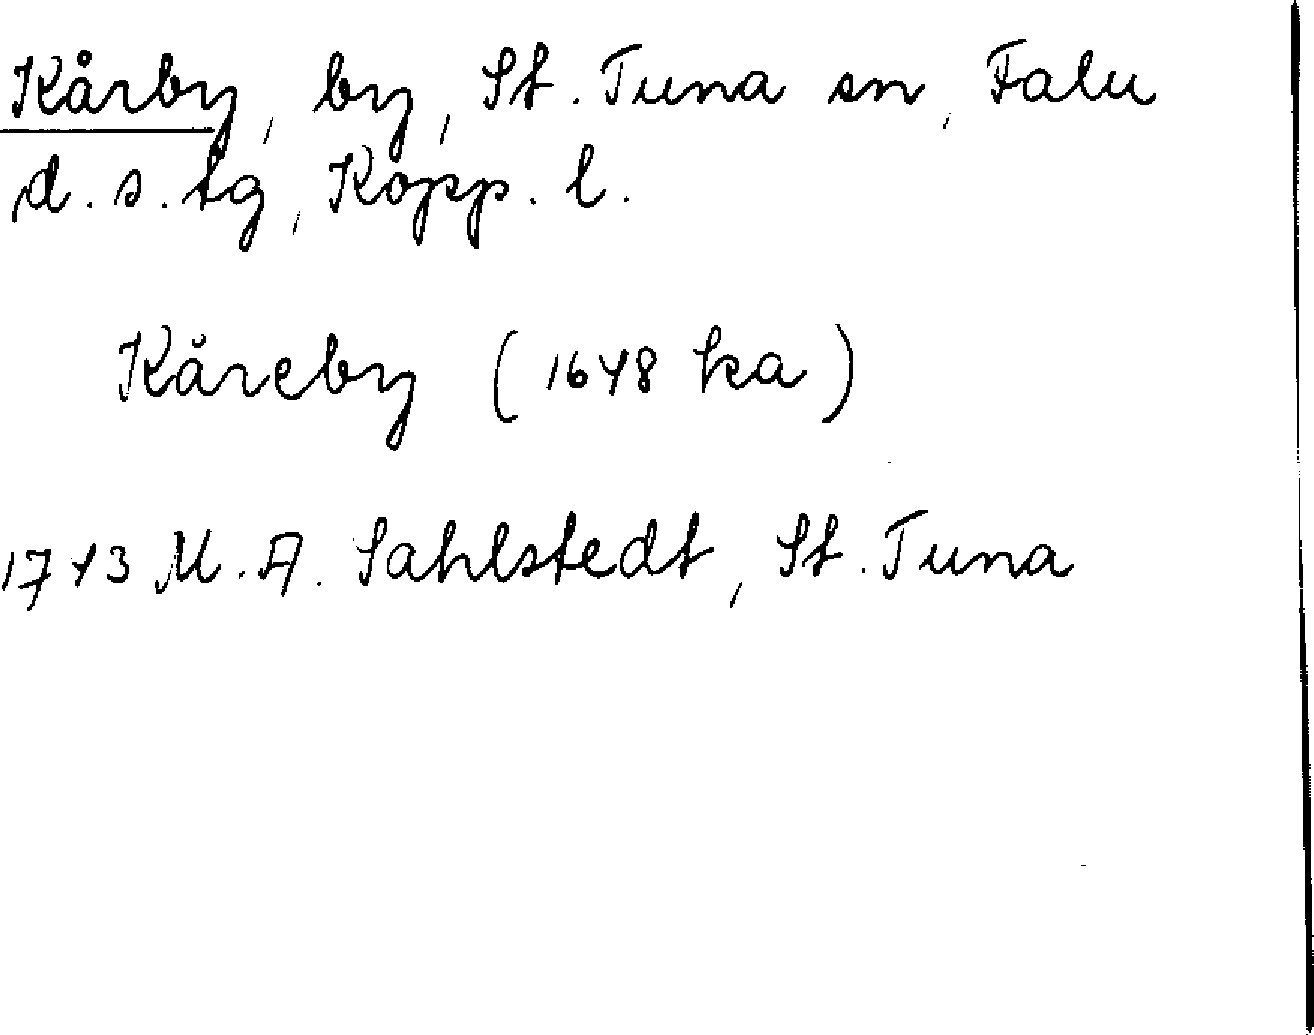 Kårby, by, St. Tuna sn, Falu
d. s. tg, Kopp. l.
Kåreby (1648 ka)
1743 M. A. Sahlstedt, St. Tuna